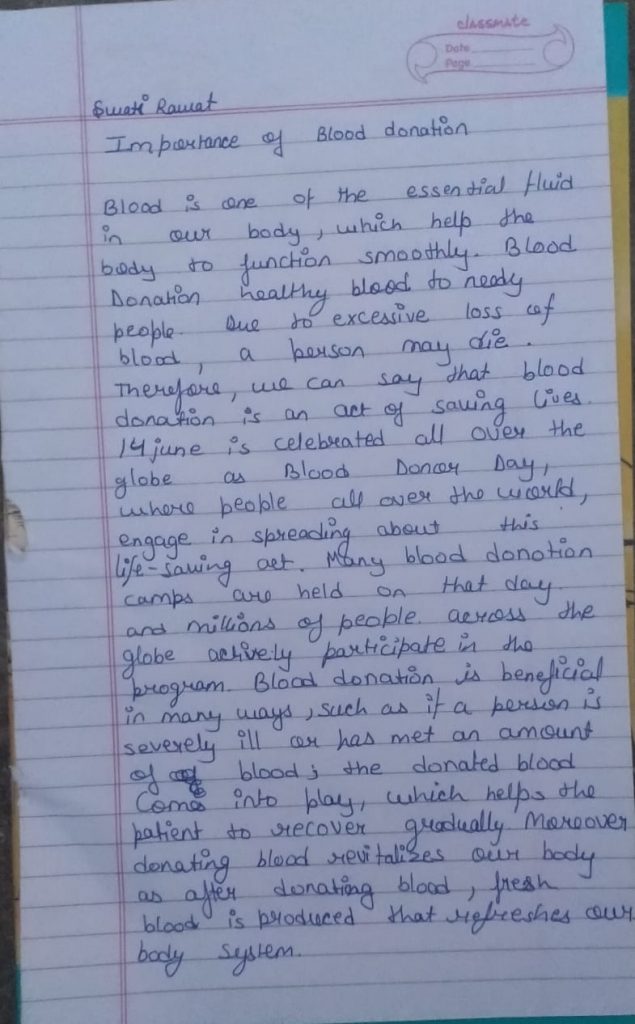 classmate
Date
Page
Swati Rawat
Importance of Blood donation
Blood is one of the essential fluid
in our body, which help the
body to function smoothly. Blood
Donation healthy blood to needy
people. Due to excessive loss of
blood, a person may die.
Therefore, we can say that blood
donation is an act of saving lives.
14 june is celebrated all over the
globe as Blood Donor Day,
where people all over the world,
engage in spreading about this
life-saving act. Many blood donotion
camps are held on that day
and millions of people. across the
globe actively participate in the
program. Blood donation is beneficial
in many ways, such as if a person is
severely ill or has met an amount
of blood; the donated blood
Come into play, which helps the
patient to recover gradually Moreover
donating blood revitalizes our body
as after donating blood, fresh
blood is produced that refreshes our
body system.